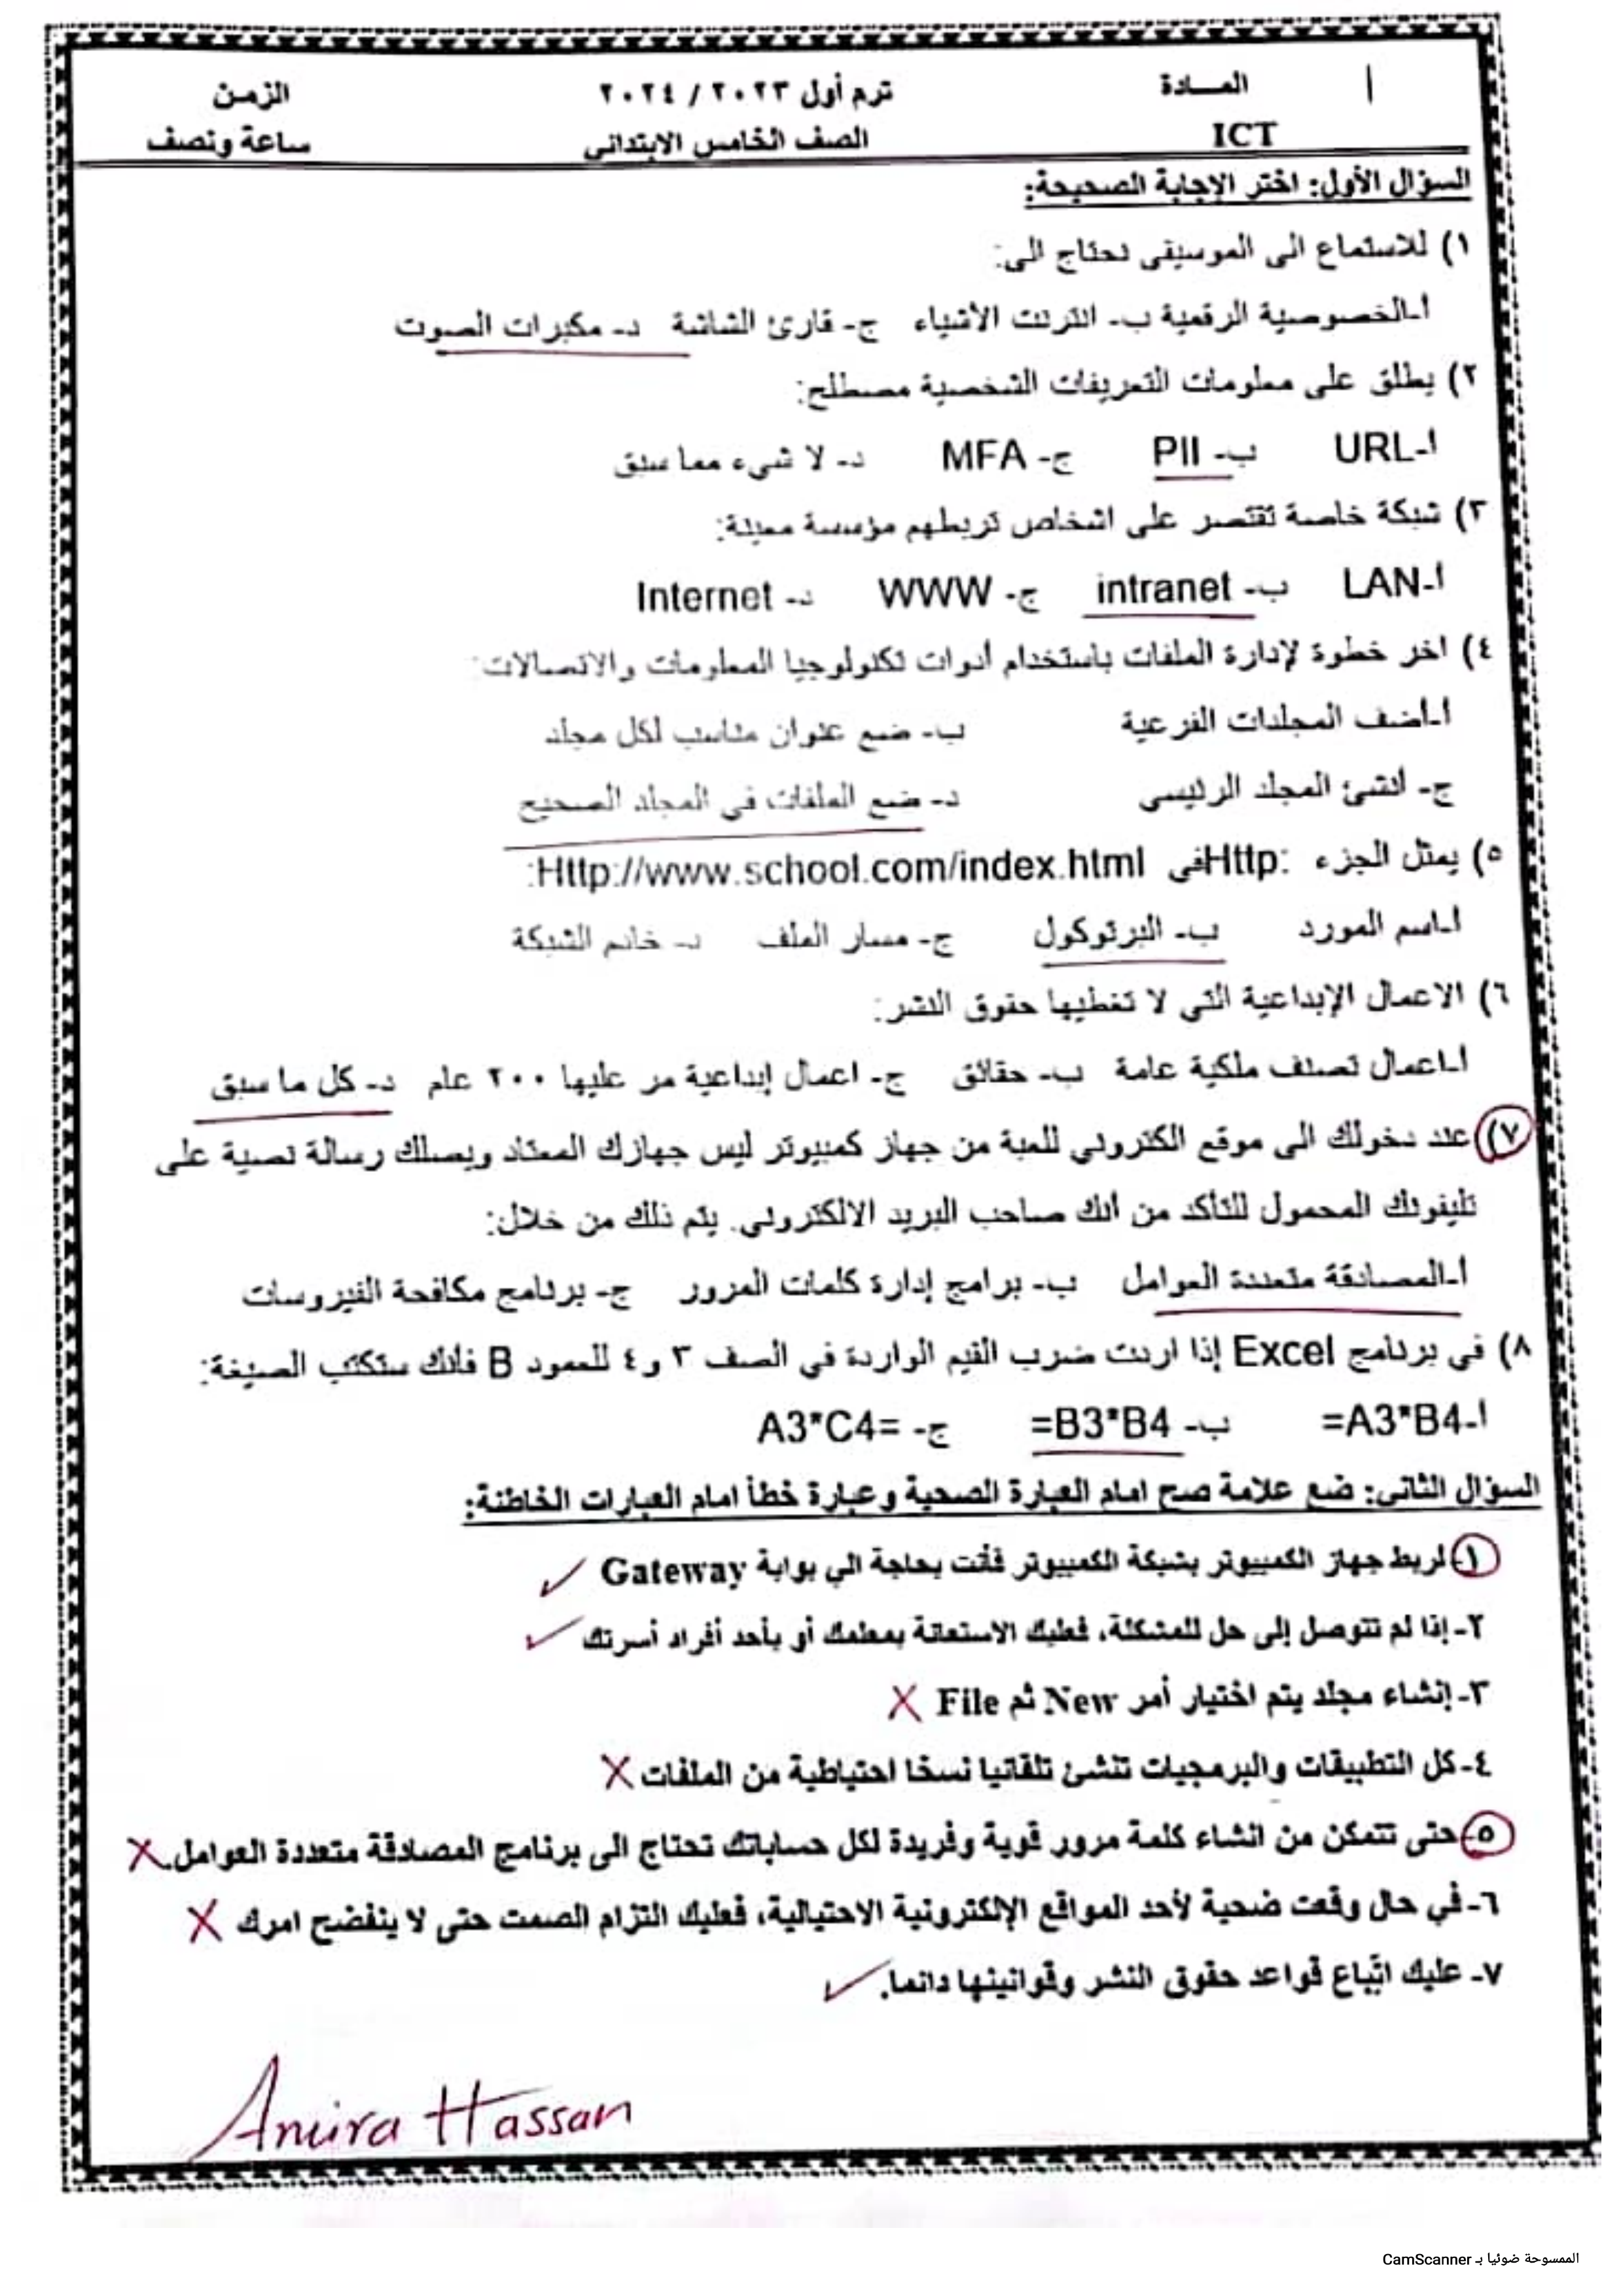 المـــادة ترم أول ٢٠٢٣ / ٢٠٢٤ الزمن
ICT الصف الخامس الابتدائى ساعة ونصف
السؤال الأول: اختر الإجابة الصحيحة:
١) للاستماع الى الموسيقى تحتاج الى:
أ-الخصوصية الرقمية ب- انترنت الأشياء ج- قارئ الشاشة د- مكبرات الصوت
٢) يطلق على معلومات التعريفات الشخصية مصطلح:
أ-URL ب- PII ج- MFA د- لا شيء مما سبق
٣) شبكة خاصة تقتصر على اشخاص تربطهم مؤسسة معينة:
أ-LAN ب- intranet ج- WWW د- Internet
٤) اخر خطوة لإدارة الملفات باستخدام أدوات تكنولوجيا المعلومات والاتصالات:
أ-أضف المجلدات الفرعية ب- ضع عنوان مناسب لكل مجلد
ج- أنشئ المجلد الرئيسي د- ضع الملفات في المجلد الصحيح
٥) يمثل الجزء Http: فى Http://www.school.com/index.html:
أ-اسم المورد ب- البرتوكول ج- مسار الملف د- خادم الشبكة
٦) الاعمال الإبداعية التي لا تغطيها حقوق النشر:
أ-اعمال تصنف ملكية عامة ب- حقائق ج- اعمال إبداعية مر عليها ٢٠٠ عام د- كل ما سبق
٧) عند دخولك الى موقع الكتروني للعبة من جهاز كمبيوتر ليس جهازك المعتاد ويصلك رسالة نصية على
تليفونك المحمول للتأكد من أنك صاحب البريد الالكتروني. يتم ذلك من خلال:
أ-المصادقة متعددة العوامل ب- برامج إدارة كلمات المرور ج- برنامج مكافحة الفيروسات
٨) في برنامج Excel إذا اردت ضرب القيم الواردة في الصف ٣ و٤ للعمود B فأنك ستكتب الصيغة:
أ-=A3*B4 ب- =B3*B4 ج- A3*C4=
السؤال الثانى: ضع علامة صح امام العبارة الصحية وعبارة خطأ امام العبارات الخاطئة:
١-لربط جهاز الكمبيوتر بشبكة الكمبيوتر فأنت بحاجة الي بوابة Gateway ✓
٢-إذا لم تتوصل إلى حل للمشكلة، فعليك الاستعانة بمعلمك أو بأحد أفراد أسرتك ✓
٣-إنشاء مجلد يتم اختيار أمر New ثم File X
٤-كل التطبيقات والبرمجيات تنشئ تلقائيا نسخا احتياطية من الملفات X
٥-حتى تتمكن من انشاء كلمة مرور قوية وفريدة لكل حساباتك تحتاج الى برنامج المصادقة متعددة العوامل. X
٦-في حال وقعت ضحية لأحد المواقع الإلكترونية الاحتيالية، فعليك التزام الصمت حتى لا ينفضح امرك X
٧- عليك اتّباع قواعد حقوق النشر وقوانينها دائما. ✓
Amira Hassan
الممسوحة ضوئيا بـ CamScanner